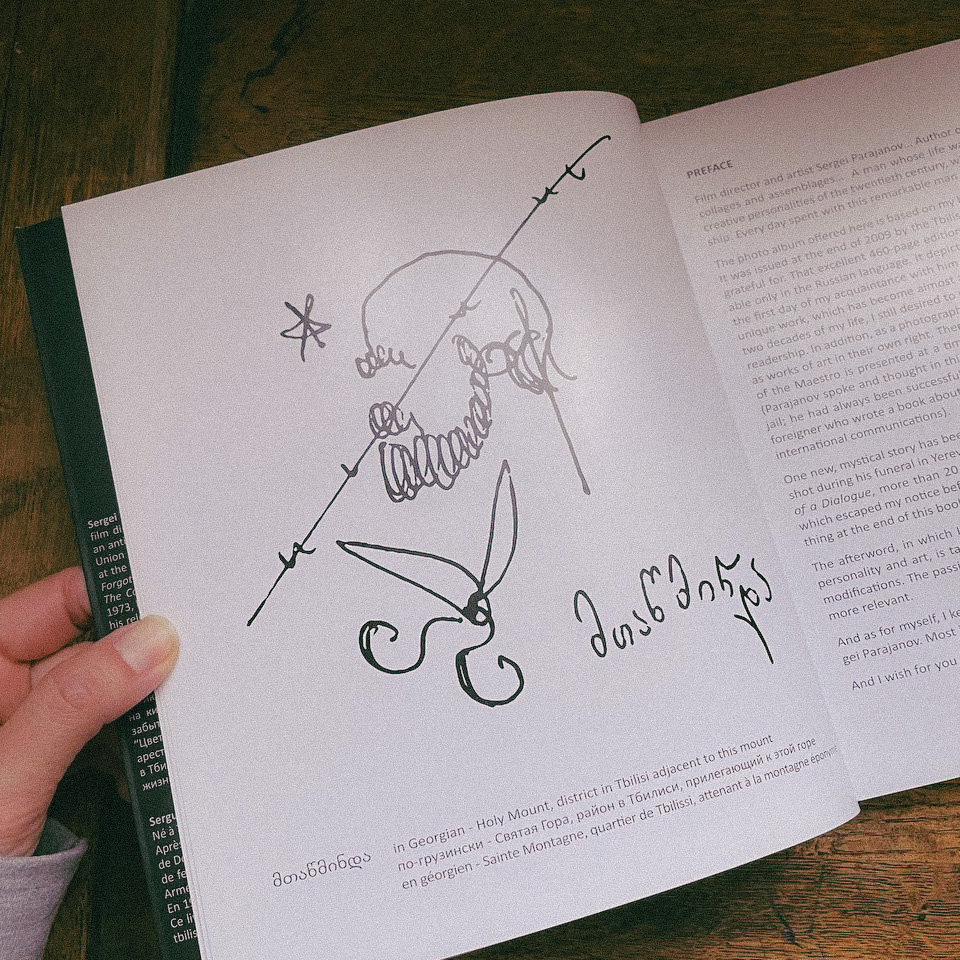 მთაწმინდა
მთაწმინდა
in Georgian - Holy Mount, district in Tbilisi adjacent to this mount
по-грузински - Святая Гора, район в Тбилиси, прилегающий к этой горе
en géorgien - Sainte Montagne, quartier de Tbilissi, attenant à la montagne éponyme
Sergei
film
an
Union
at the
Forgot
The
1973,
his
на
забыт
"Цвет
арест
в Тби
жизн
Né à
Après
de
de
Armé
En
Ce
tbilis
PREFACE
Film director and artist Sergei Parajanov... Author
collages and assemblages... A man whose life
creative personalities of the twentieth century,
ship. Every day spent with this remarkable man
The photo album offered here is based on my
It was issued at the end of 2009 by the Tbilisi
grateful for. That excellent 460-page edition
able only in the Russian language. It
the first day of my acquaintance with him
unique work, which has become almost
two decades of my life, I still desired to
readership. In addition, as a photograph
as works of art in their own right.
of the Maestro is presented at a
(Parajanov spoke and thought in
jail; he had always been successful
foreigner who wrote a book about
international communications).
One new, mystical story has been
shot during his funeral in
of a Dialogue, more than 20
which escaped my notice
thing at the end of this book
The afterword, in which I
personality and art, is
modifications. The
more relevant.
And as for myself, I
gei Parajanov. Most
And I wish for you